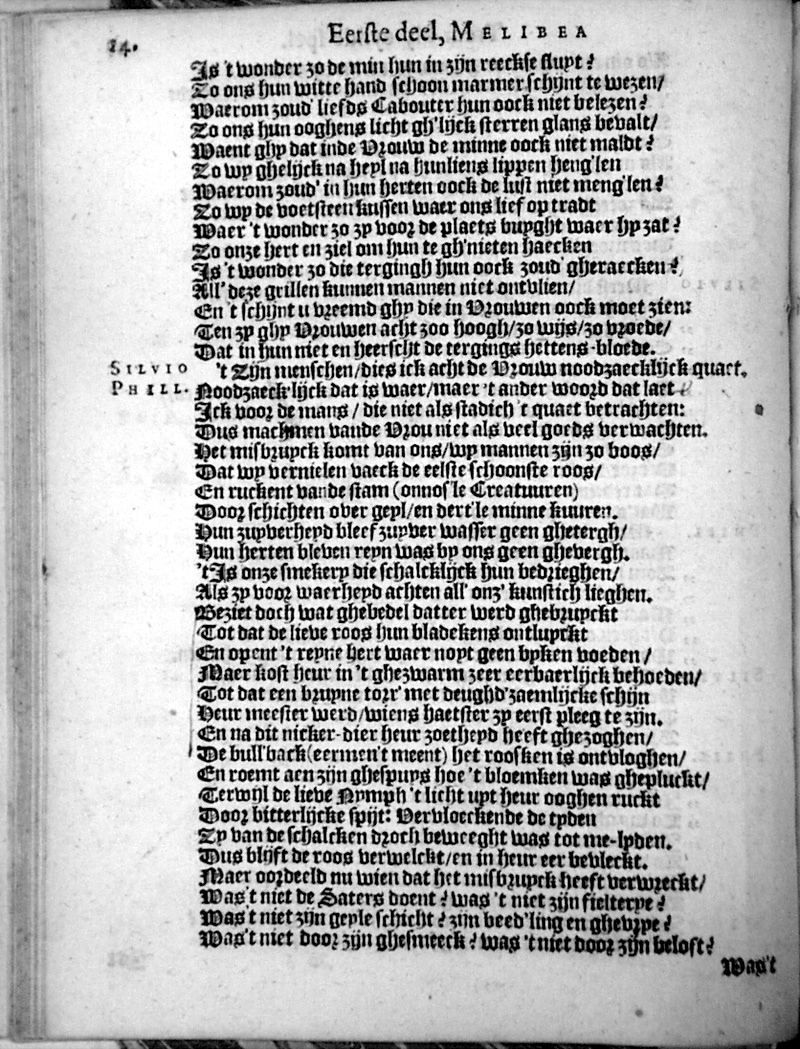 14.
Eerste deel, MELIBEA
Is 't wonder zo de min hun in zijn reeckse slupt?
Zo ons hun witte hand schoon marmer schijnt te wezen/
Waerom zoud' liefds Cabouter hun oock niet belezen?
Zo ons hun ooghens licht gh'lijck sterren glans bevalt/
Waent ghy dat inde Vrouw de minne oock niet maldt?
Zo wy ghelijck na heyl na hunliens lippen heng'len
Waerom zoud' in hun herten oock de lust niet meng'len?
Zo wy de voetsteen kussen waer ons lief op tradt
Waer 't wonder zo zy voor de plaets buyght waer hy zat?
Zo onze hert en ziel om hun te gh'nieten haecken
Is 't wonder zo die tergingh hun oock zoud' gheraecken?
All' deze grillen kunnen mannen niet ontvlien/
En 't schijnt u vreemd ghy die in Vrouwen oock moet zien:
Ten zy ghy Vrouwen acht zoo hoogh/zo wijs/zo vroede/
Dat in hun niet en heerscht de tergings hettens-bloede.
SILVIO 't Zijn menschen/dies ick acht de Vrouw noodzaecklijck quaet.
PHILL. Noodzaeck'lijck dat is waer/maer 't ander woord dat laet
Ick voor de mans/ die niet als stadich 't quaet betrachten:
Dus machmen vande Vrou niet als veel goeds verwachten.
Het misbruyck komt van ons/wy mannen zijn zo boos/
Dat wy vernielen vaeck de eelste schoonste roos/
En ruckent vande stam (onnos'le Creatuuren)
Door schichten over geyl/en dert'le minne kuuren.
Hun zuyverheyd bleef zuyver wasser geen ghetergh/
Hun herten bleven reyn was by ons geen ghevergh.
't Is onze smekery die schalcklijck hun bedrieghen/
Als zy voor waerheyd achten all' onz' kunstich lieghen.
Beziet doch wat ghebedel datter werd ghebruyckt
Tot dat de lieve roos hun bladekens ontluyckt
En opent 't reyne hert waer noyt geen byken voeden/
Maer kost heur in 't ghezwarm zeer eerbaerlijck behoeden/
Tot dat een bruyne torr' met deughd'zaemlijcke schijn
Heur meester werd/wiens haetster zy eerst pleeg te zijn.
En na dit nicker-dier heur zoetheyd heeft ghezoghen/
De bull'back (eermen't meent) het roosken is ontvloghen/
En roemt aen zijn ghespuys hoe 't bloemken was ghepluckt/
Terwijl de lieve Nymph 't licht uyt heur ooghen ruckt
Door bitterlijcke spijt: Vervloeckende de tyden
Zy van de schalcken droch beweeght was tot me-lyden.
Dus blijft de roos verwelckt/en in heur eer bevleckt.
Maer oordeeld nu wien dat het misbruyck heeft verwreckt/
Was't niet de Saters doent? was 't niet zijn fielterye?
Was't niet zijn geyle schicht? zijn beed'ling en ghevrye?
Was't niet door zijn ghesmeeck? was 't niet door zijn beloft?
Was't